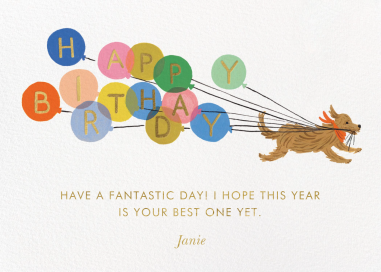 HAPPY
BIRTHDAY
HAVE A FANTASTIC DAY! I HOPE THIS YEAR
IS YOUR BEST ONE YET.
Janie